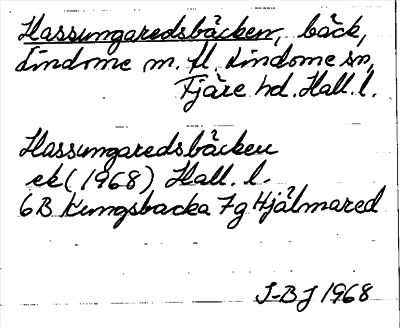 Hassungaredsbäcken, bäck,
Lindome m. fl. Lindome sn,
Fjäre hd. Hall. l.
Hassungaredsbäcken
ek (1968) Hall. l.
6B Kungsbacka 7g Hjälmared
J-BJ 1968